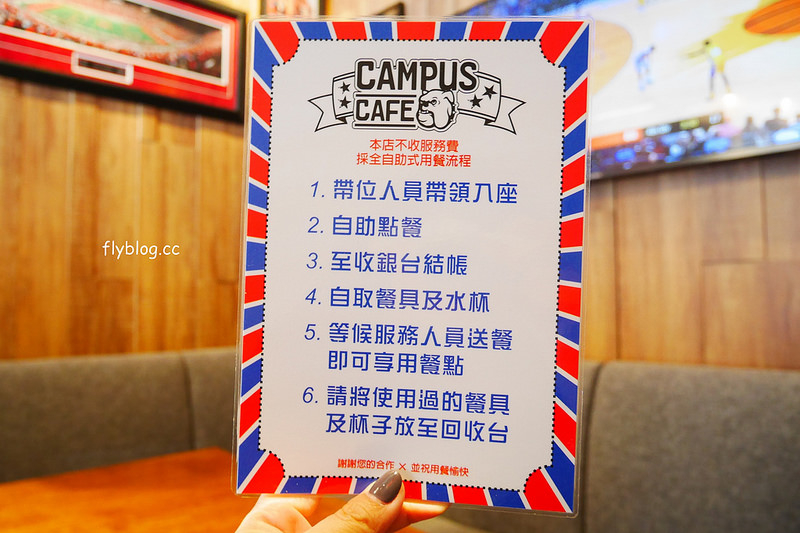 CAMPUS
CAFE
本店不收服務費
採全自助式用餐流程
1. 帶位人員帶領入座
2. 自助點餐
3. 至收銀台結帳
4. 自取餐具及水杯
5. 等候服務人員送餐
即可享用餐點
6. 請將使用過的餐具
及杯子放至回收台
謝謝您的合作 × 並祝用餐愉快
flyblog.cc